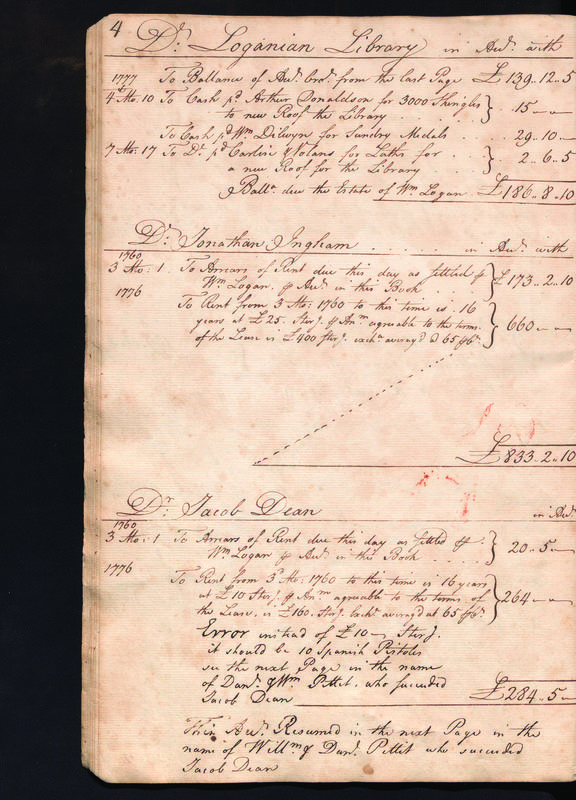 4 Dr. Loganian Library in Acct. with
1777 To Ballance of Acct. bro't. from the last Page £139..12..5
4 Mo. 10 To Cash pd. Arthur Donaldson for 3000 Shingles
to new Roof the Library . . . . } 15
To Cash pd. Wm. Dilwyn for Sundry Medals . . 29..10
7 Mo. 17 To Do. pd. Carlile & Nolans for Laths for . .
a new Roof for the Library . . . } 2..6..5
Ball. due the Estate of Wm. Logan £186..8..10
Dr. Jonathan Ingham . . . . . in Acct. with
1760
3 Mo: 1 To Arrears of Rent due this day as settled
Wm. Logan Acct in this Book . . } £173..2..10
1776 To Rent from 3 Mo: 1760 to this time is 16
years at £25. Sterg. Anm. agreable to the terms } 660
of the Lease is £400 Sterg. excha. averag'd @ 65
£833..2..10
Dr. Jacob Dean in Acct.
1760
3 Mo: 1 To Arrears of Rent due this day as settled
Wm Logan Acct. in this Book . . . } 20..5
1776 To Rent from 3d. Mo: 1760 to this time is 16 years
at £10 Sterg. Anm agreable to the terms of } 264
the Lease, is £160. Sterg. Exch. averag'd at 65
Error instead of £10 Sterg.
it should be 10 Spanish Pistoles
see the next Page in the name
of Danl. & Wm Pettit, who succeeded
Jacob Dean £284..5
This Acct. Resumed in the next Page in the
name of Willm. & Danl. Pettit who succeeded
Jacob Dean